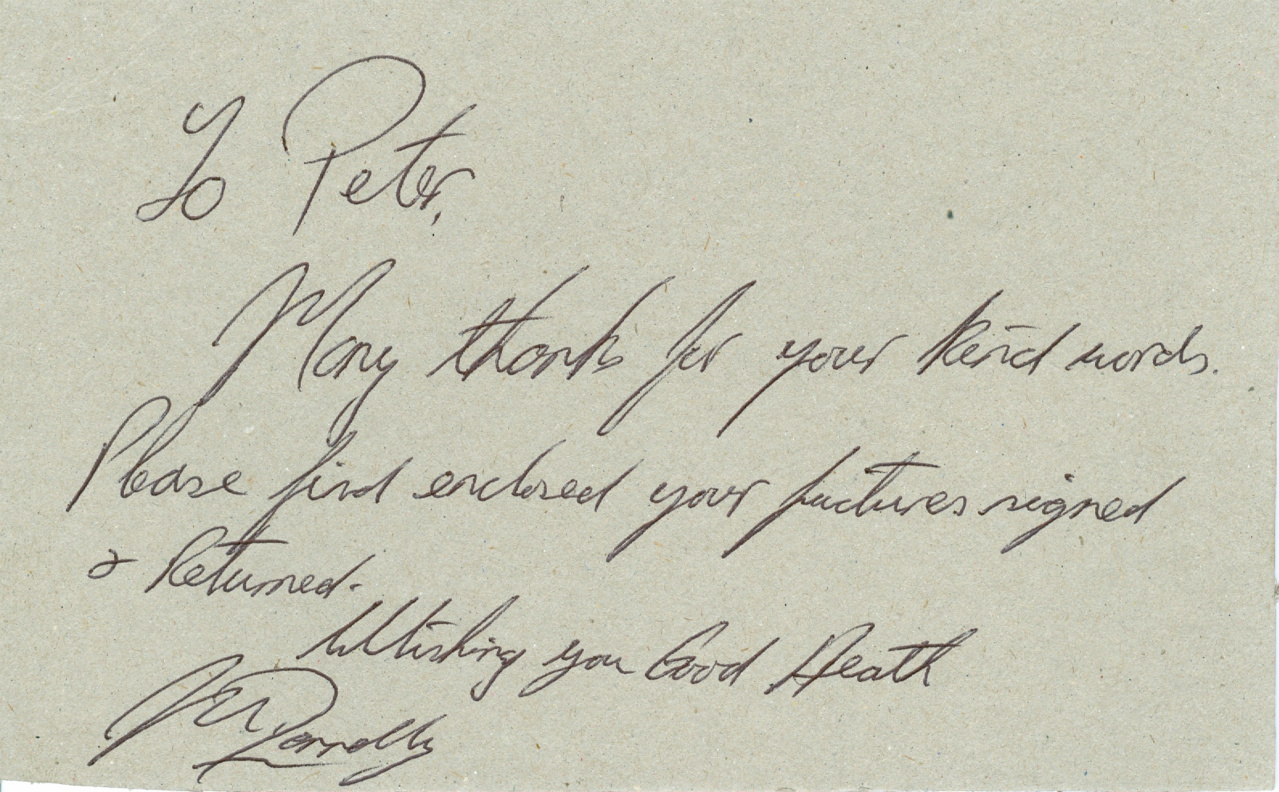 To Peter,
Many thanks for your kind words.
Please find enclosed your pictures signed
& Returned.
Wishing you Good Heath
Donnelly